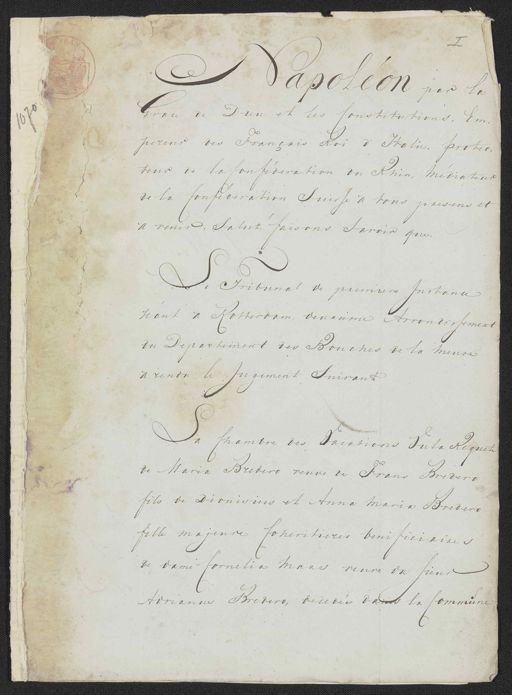 I
1070
Napoléon par la
Grace de Dieu et les Constitutions, Em
pereur des Français Roi d'Italie, protec
teur de la Confédération du Rhin, Médiateur
de la Confédération Suisse à tous présens et
à venir, Salut! faisons Savoir que.
Le Tribunal de premiere Instance
séant à Rotterdam, deuxieme Arrondissement
du Departement des Bouches de la Meuse
a rendu le Jugement Suivant
La Chambre des Vacations Vu la Requete
de Maria Bredero veuve de Frans Bredero
fils de Dionisius et Anna Maria Bredero
fille majeure Coheritieres beneficiaires
de dame Cornelia Maas veuve du Sieur
Adrianus Bredero, décedée dans la Commune